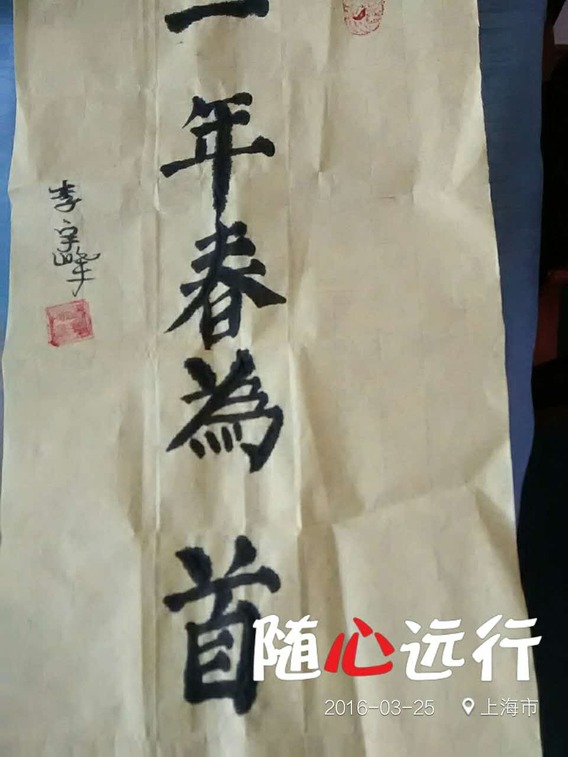 一年春為首
李
峰
随心远行
2016-03-25 上海市